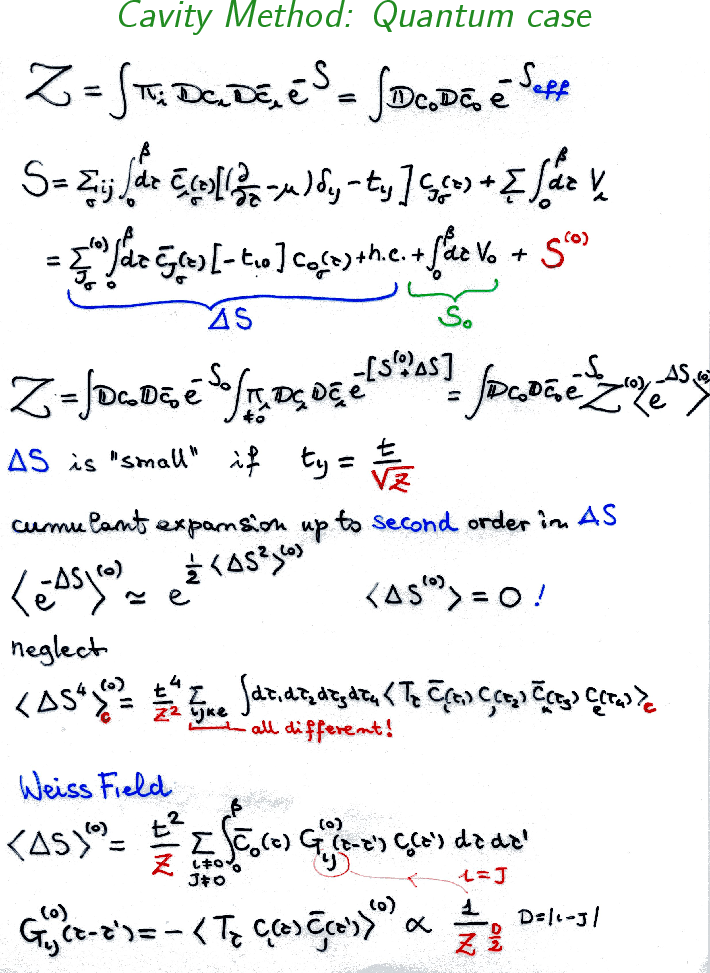 Cavity Method: Quantum case
Z = ∫ Π_i Dc_i Dc̄_i e^{-S} = ∫ Dc₀Dc̄₀ e^{-S_eff}
S = Σ_{ijσ} ∫₀^β dτ c̄_{iσ}(τ)[(∂/∂τ - μ)δ_{ij} - t_{ij}] c_{jσ}(τ) + Σ_i ∫₀^β dτ V_i
= Σ^{(0)}_{jσ} ∫₀^β dτ c̄_{jσ}(τ)[-t_{i0}] c_{0σ}(τ) + h.c. + ∫₀^β dτ V₀ + S^{(0)}
ΔS S₀
Z = ∫ Dc₀Dc̄₀ e^{-S₀} ∫ Π_{i≠0} Dc_i Dc̄_i e^{-[S^{(0)}+ΔS]} = ∫ Dc₀Dc̄₀ e^{-S₀} Z^{(0)} ⟨e^{-ΔS}⟩^{(0)}
ΔS is "small" if t_{ij} = t/√z
cumulant expansion up to second order in ΔS
⟨e^{-ΔS}⟩^{(0)} ≃ e^{½⟨ΔS²⟩^{(0)}} ⟨ΔS^{(0)}⟩ = 0 !
neglect
⟨ΔS⁴⟩_c^{(0)} = t⁴/z² Σ_{ijke} ∫dτ₁dτ₂dτ₃dτ₄ ⟨T_τ c̄_i(τ₁) c_j(τ₂) c̄_k(τ₃) c_e(τ₄)⟩_c
all different!
Weiss Field
⟨ΔS⟩^{(0)} = t²/z Σ_{i≠0 j≠0} ∫₀^β c̄₀(τ) G_{ij}^{(0)}(τ-τ') c₀(τ') dτ dτ'
i = J
G_{ij}^{(0)}(τ-τ') = - ⟨T_τ c_i(τ) c̄_j(τ')⟩^{(0)} ∝ 1/z^{D/2} D=|i-J|